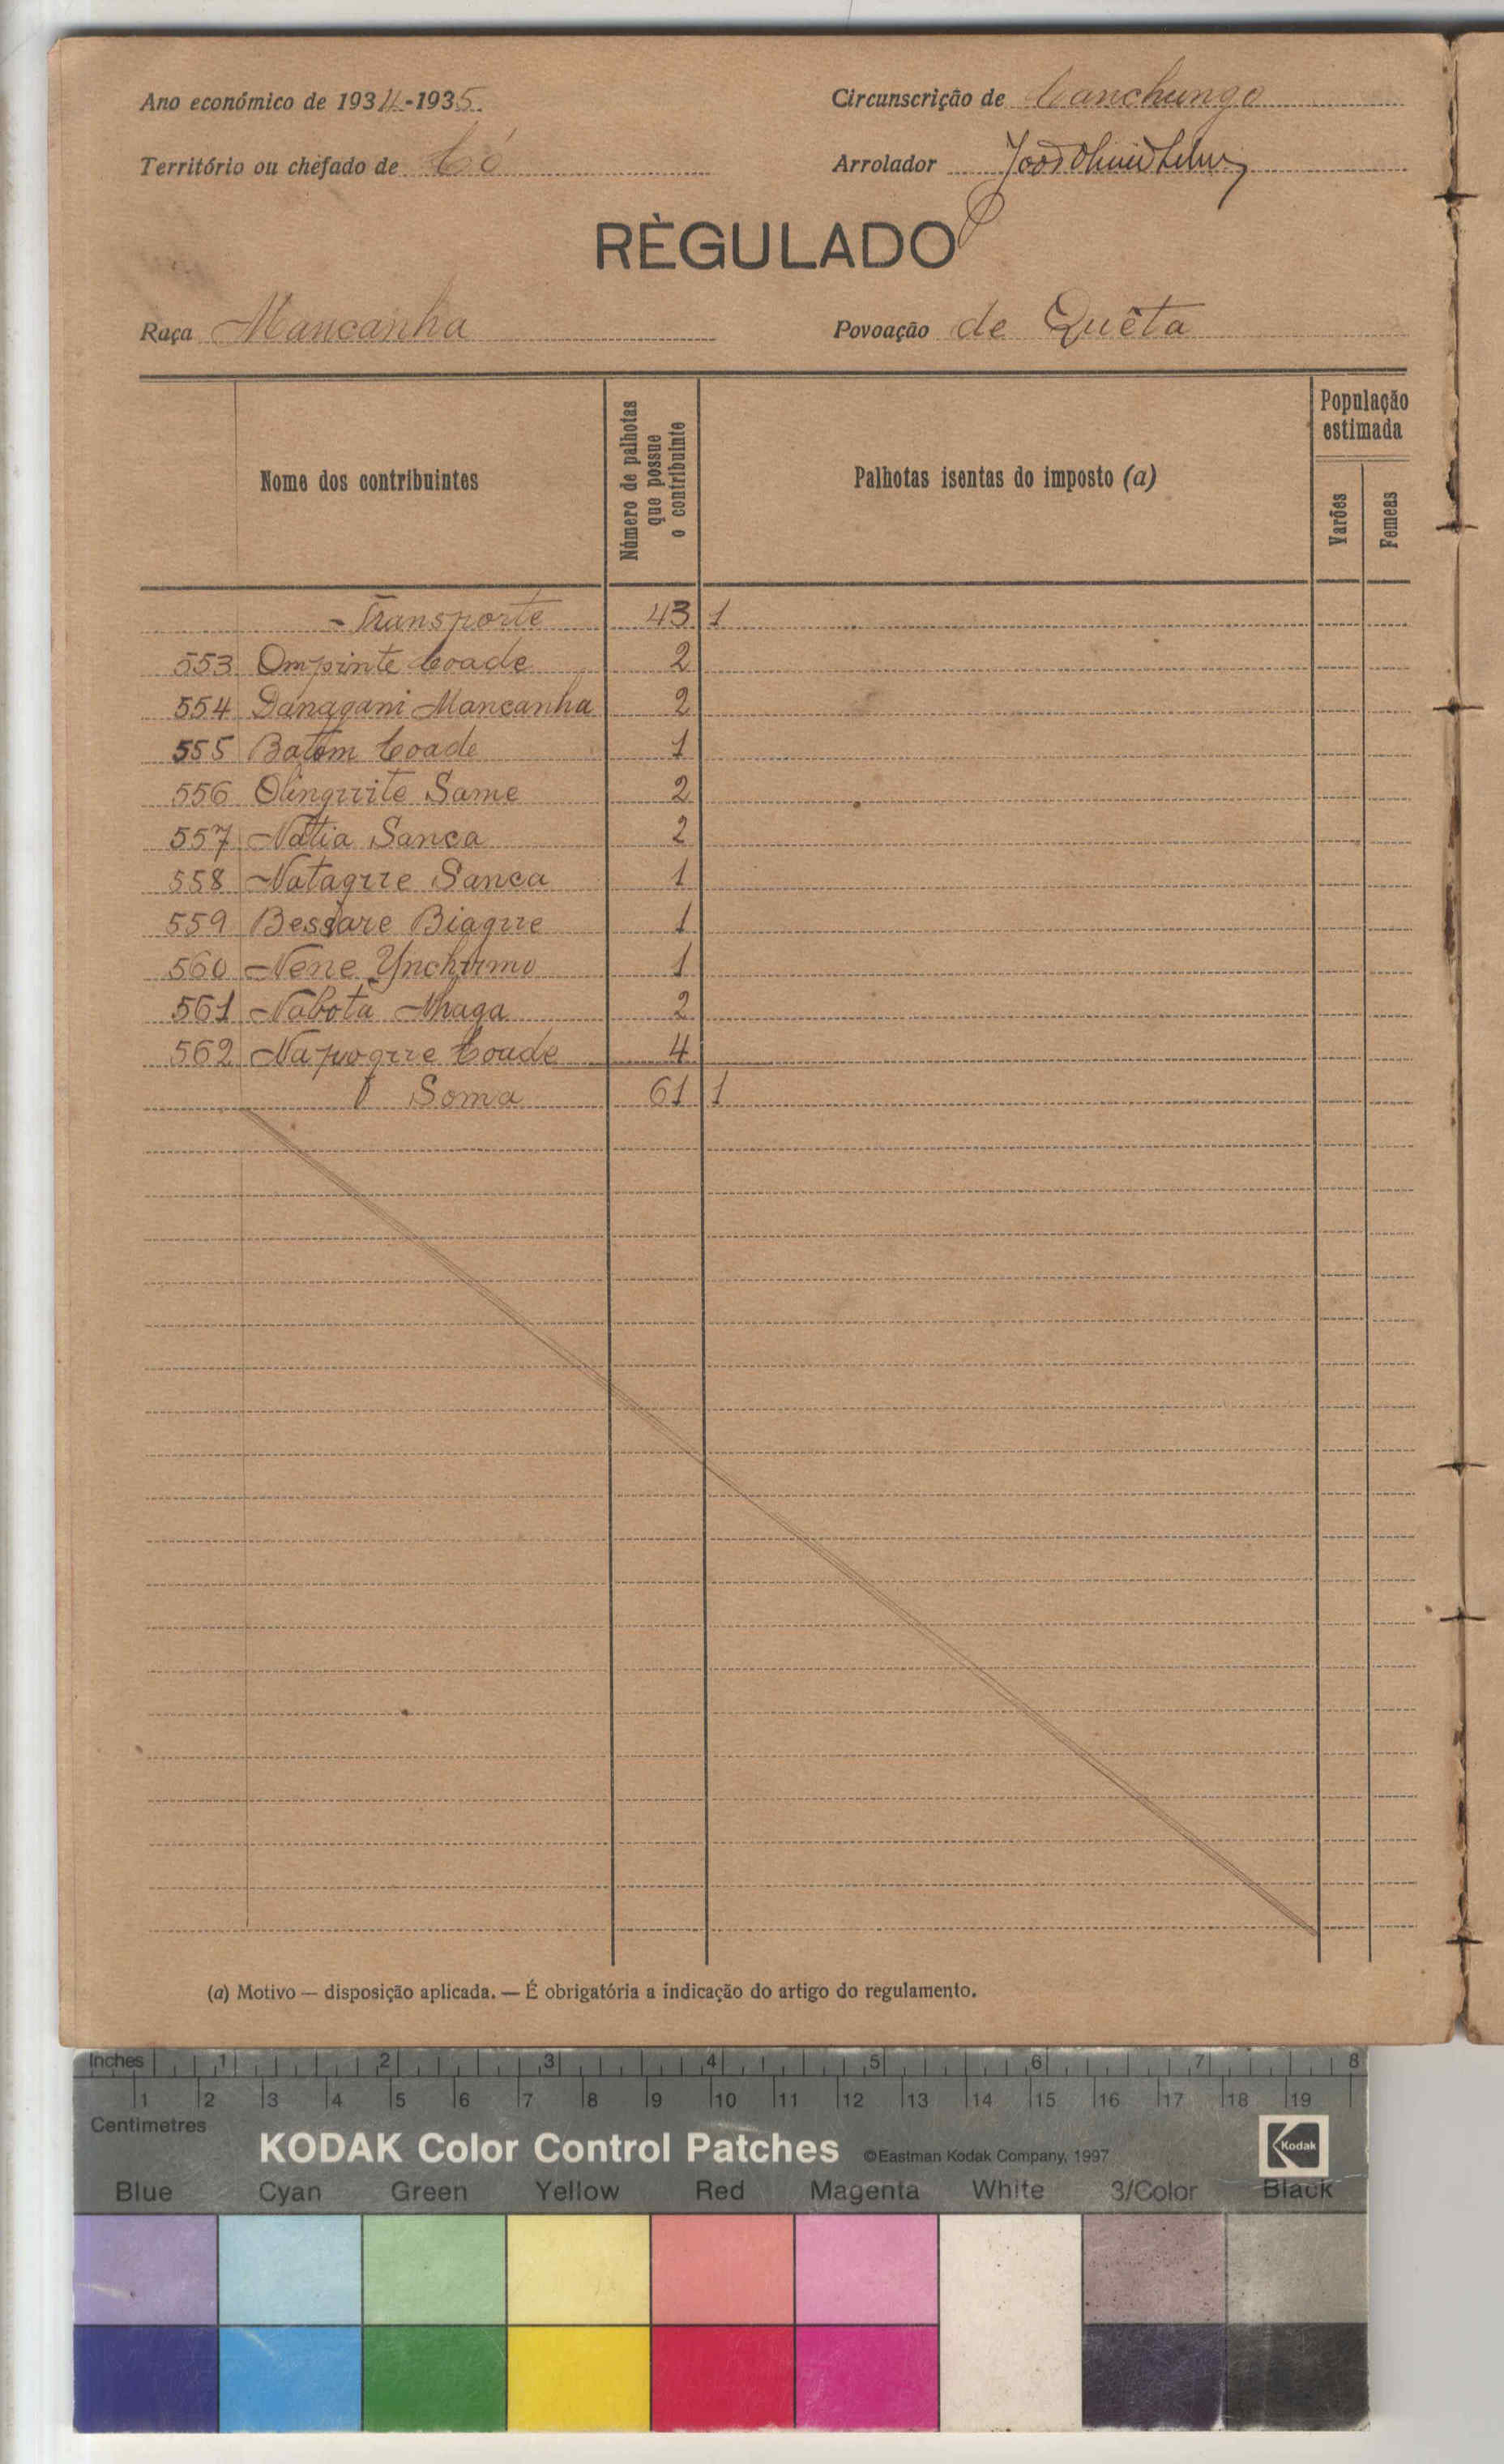 Ano económico de 1934-1935.
Circunscrição de Canchungo
Território ou chefado de Có
Arrolador
RÈGULADO
Raça Mancanha
Povoação de Quêta
Nome dos contribuintes
Número de palhotas que possue o contribuinte
Palhotas isentas do imposto (a)
População estimada
Varões
Femeas
- Transporte 43 1
553 Ompinte Coade 2
554 Danagani Mancanha 2
555 Batom Coade 1
556 Olinquite Same 2
557 Natia Sanca 2
558 Nataque Sanca 1
559 Bessare Biague 1
560 Nene Ynchumo 1
561 Nabota Nhaga 2
562 Napoque Coade 4
Soma 61 1
(a) Motivo — disposição aplicada. — É obrigatória a indicação do artigo do regulamento.
Inches 1 2 3 4 5 6 7 8
1 2 3 4 5 6 7 8 9 10 11 12 13 14 15 16 17 18 19
Centimetres
KODAK Color Control Patches ©Eastman Kodak Company, 1997 Kodak
Blue Cyan Green Yellow Red Magenta White 3/Color Black